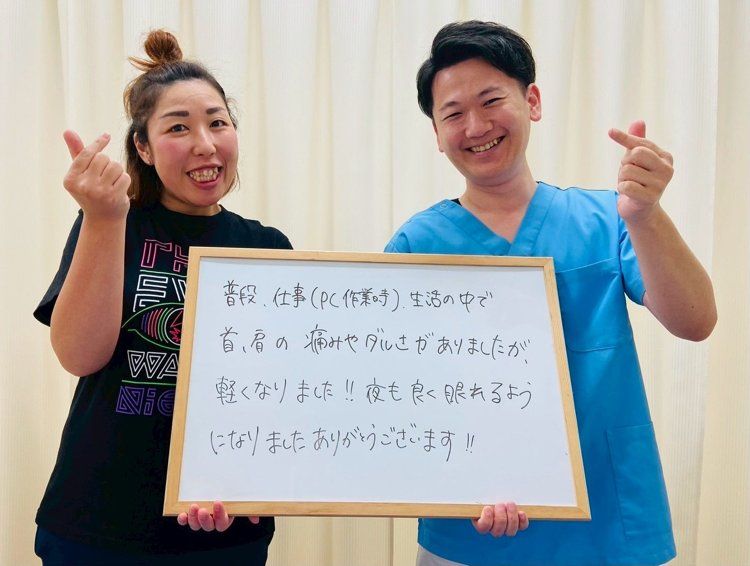 普段、仕事(PC作業時)、生活の中で
首、肩の 痛みやダルさがありましたが、
軽くなりました!! 夜も良く眠れるよう
になりましたありがとうございます!!
EY
WA
NIG